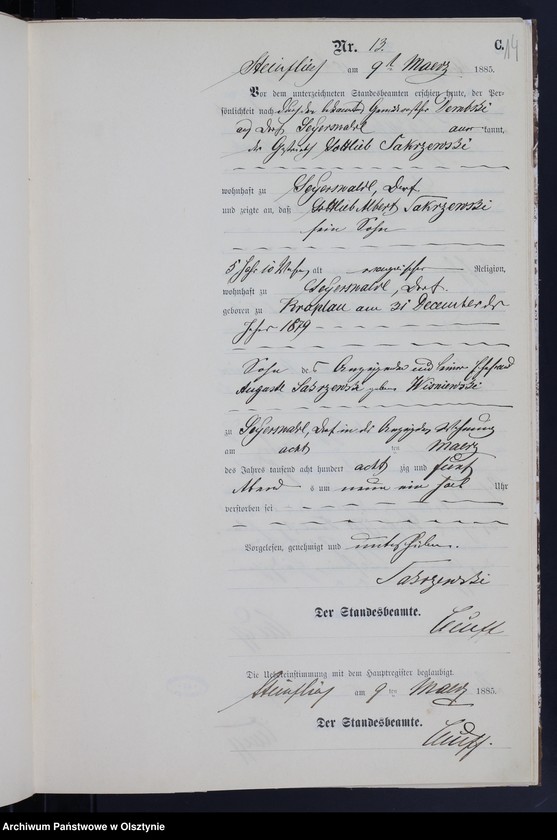 Nr. 13.
C. 14
Steinfließ am 9t Maerz 1885.
Vor dem unterzeichneten Standesbeamten erschien heute, der Per-
sönlichkeit nach durch den bekannten Gemeindevorsteher Dembski
aus Dorf Seyerswald aner kannt,
der Gottlieb Sakrzewski
wohnhaft zu Seyerswald, Dorf
und zeigte an, daß Gottlieb Albert Sakrzewski
sein Sohn
5 Jahr 10 Wochen, alt evangelischer Religion,
wohnhaft zu Seyerswald, Dorf.
geboren zu Kroplau am 31 December des
Jahres 1879
Sohn des Anzeigenden und seiner Ehefrau
Auguste Sakrzewski geborne Wisniewski
zu Seyerswald, Dorf in des Anzeigenden Wohnung
am acht ten Maerz
des Jahres tausend acht hundert acht zig und fünf
Abend s um neun ein halb Uhr
verstorben sei
Vorgelesen, genehmigt und unterschrieben.
Sakrzewski
Der Standesbeamte.
Die Uebereinstimmung mit dem Hauptregister beglaubigt.
Steinfließ am 9 ten Maerz 1885.
Der Standesbeamte.
Archiwum Państwowe w Olsztynie